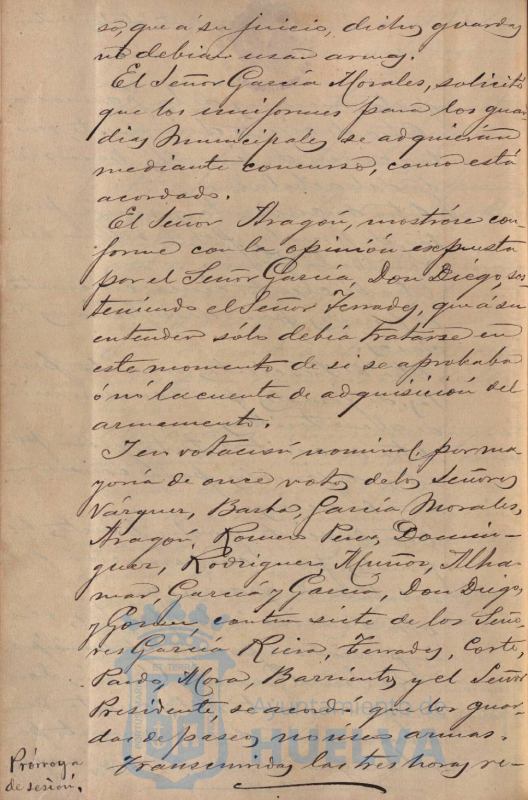 so, que á su juicio, dichos guardas
no debian usar armas.
El Señor García Morales, solicitó
que los uniformes para los guar-
dias Municipales se adquieran
mediante concurso, como está
acordado.
El Señor Aragón, mostróse con-
forme con la opinión expuesta
por el Señor García, Don Diego, sos-
teniendo el Señor Terrades, que á su
entender sólo debia tratarse en
este momento de si se aprobaba
ó nó la cuenta de adquisición del
armamento.
I en votación nominal, por ma-
yoría de once votos de los Señores
Vázquez, Barba, García Morales,
Aragón, Romero Perez, Domin-
guez, Rodriguez, Muñoz, Alha-
mar, García y García, Don Diego,
y Gomez, contra siete de los Seño-
res García Riera, Terrades, Corte,
Pardo, Mora, Barrientos y el Señor
Presidente, se acordó que los guar-
das de paseos no usen armas.
Prórroga
de sesión.
Transcurridas las tres horas re-
Ayuntamiento de
HUELVA